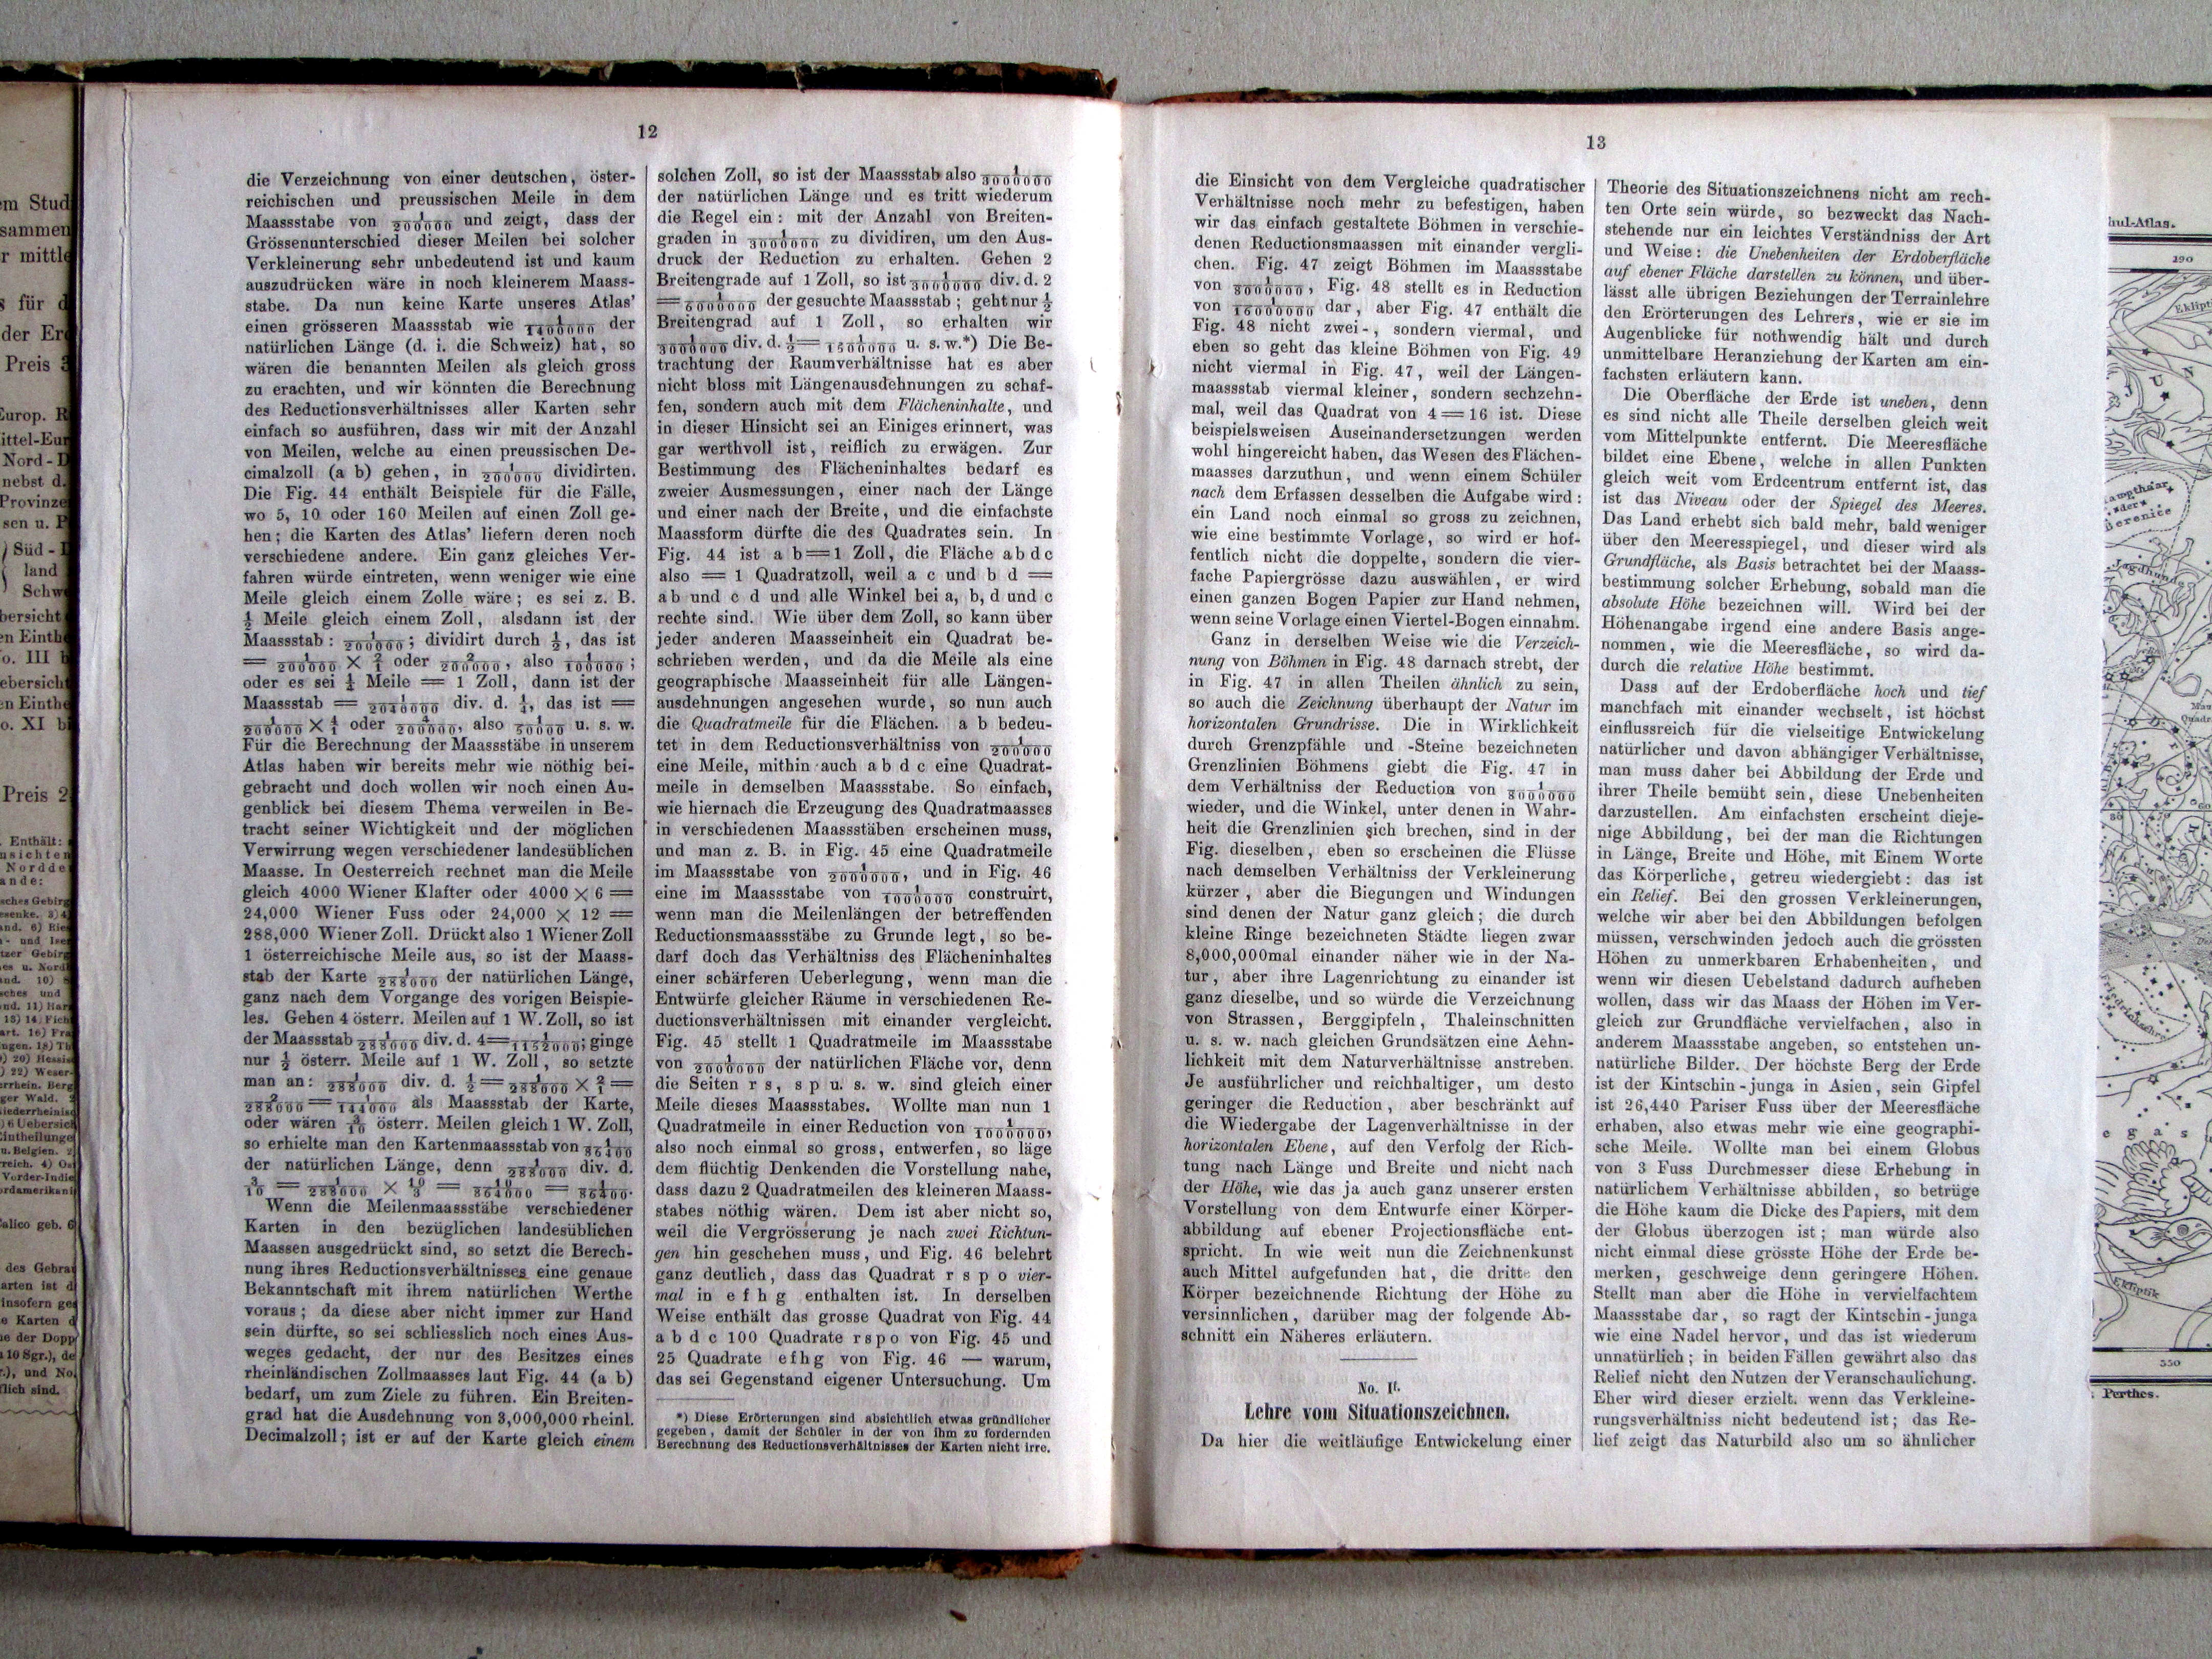 12
die Verzeichnung von einer deutschen, öster-
reichischen und preussischen Meile in dem
Maassstabe von 1/200000 und zeigt, dass der
Grössenunterschied dieser Meilen bei solcher
Verkleinerung sehr unbedeutend ist und kaum
auszudrücken wäre in noch kleinerem Maass-
stabe. Da nun keine Karte unseres Atlas'
einen grösseren Maassstab wie 1/1400000 der
natürlichen Länge (d. i. die Schweiz) hat, so
wären die benannten Meilen als gleich gross
zu erachten, und wir könnten die Berechnung
des Reductionsverhältnisses aller Karten sehr
einfach so ausführen, dass wir mit der Anzahl
von Meilen, welche au einen preussischen De-
cimalzoll (a b) gehen, in 1/200000 dividirten.
Die Fig. 44 enthält Beispiele für die Fälle,
wo 5, 10 oder 160 Meilen auf einen Zoll ge-
hen; die Karten des Atlas' liefern deren noch
verschiedene andere. Ein ganz gleiches Ver-
fahren würde eintreten, wenn weniger wie eine
Meile gleich einem Zolle wäre; es sei z. B.
1/2 Meile gleich einem Zoll, alsdann ist der
Maassstab: 1/200000; dividirt durch 1/2, das ist
= 1/200000 × 2/1 oder 2/200000, also 1/100000;
oder es sei 1/4 Meile = 1 Zoll, dann ist der
Maassstab = 1/2040000 div. d. 1/4, das ist =
1/200000 × 4/1 oder 4/200000, also 1/50000 u. s. w.
Für die Berechnung der Maassstäbe in unserem
Atlas haben wir bereits mehr wie nöthig bei-
gebracht und doch wollen wir noch einen Au-
genblick bei diesem Thema verweilen in Be-
tracht seiner Wichtigkeit und der möglichen
Verwirrung wegen verschiedener landesüblichen
Maasse. In Oesterreich rechnet man die Meile
gleich 4000 Wiener Klafter oder 4000 × 6 =
24,000 Wiener Fuss oder 24,000 × 12 =
288,000 Wiener Zoll. Drückt also 1 Wiener Zoll
1 österreichische Meile aus, so ist der Maass-
stab der Karte 1/288000 der natürlichen Länge,
ganz nach dem Vorgange des vorigen Beispie-
les. Gehen 4 österr. Meilen auf 1 W. Zoll, so ist
der Maassstab 1/288000 div. d. 4=1/1152000; ginge
nur 1/2 österr. Meile auf 1 W. Zoll, so setzte
man an: 1/288000 div. d. 1/2=1/288000 × 2/1=
2/288000=1/144000 als Maassstab der Karte,
oder wären 3/10 österr. Meilen gleich 1 W. Zoll,
so erhielte man den Kartenmaassstab von 1/86400
der natürlichen Länge, denn 1/288000 div. d.
3/10 = 1/288000 × 10/3 = 10/864000 = 1/86400.
Wenn die Meilenmaassstäbe verschiedener
Karten in den bezüglichen landesüblichen
Maassen ausgedrückt sind, so setzt die Berech-
nung ihres Reductionsverhältnisses eine genaue
Bekanntschaft mit ihrem natürlichen Werthe
voraus; da diese aber nicht immer zur Hand
sein dürfte, so sei schliesslich noch eines Aus-
weges gedacht, der nur des Besitzes eines
rheinländischen Zollmaasses laut Fig. 44 (a b)
bedarf, um zum Ziele zu führen. Ein Breiten-
grad hat die Ausdehnung von 3,000,000 rheinl.
Decimalzoll; ist er auf der Karte gleich einem
solchen Zoll, so ist der Maassstab also 1/3000000
der natürlichen Länge und es tritt wiederum
die Regel ein: mit der Anzahl von Breiten-
graden in 1/3000000 zu dividiren, um den Aus-
druck der Reduction zu erhalten. Gehen 2
Breitengrade auf 1 Zoll, so ist 1/3000000 div. d. 2
=1/6000000 der gesuchte Maassstab; geht nur 1/2
Breitengrad auf 1 Zoll, so erhalten wir
1/3000000 div. d. 1/2=1/1500000 u. s. w.*) Die Be-
trachtung der Raumverhältnisse hat es aber
nicht bloss mit Längenausdehnungen zu schaf-
fen, sondern auch mit dem Flächeninhalte, und
in dieser Hinsicht sei an Einiges erinnert, was
gar werthvoll ist, reiflich zu erwägen. Zur
Bestimmung des Flächeninhaltes bedarf es
zweier Ausmessungen, einer nach der Länge
und einer nach der Breite, und die einfachste
Maassform dürfte die des Quadrates sein. In
Fig. 44 ist a b=1 Zoll, die Fläche a b d c
also = 1 Quadratzoll, weil a c und b d =
a b und c d und alle Winkel bei a, b, d und c
rechte sind. Wie über dem Zoll, so kann über
jeder anderen Maasseinheit ein Quadrat be-
schrieben werden, und da die Meile als eine
geographische Maasseinheit für alle Längen-
ausdehnungen angesehen wurde, so nun auch
die Quadratmeile für die Flächen. a b bedeu-
tet in dem Reductionsverhältniss von 1/200000
eine Meile, mithin auch a b d c eine Quadrat-
meile in demselben Maassstabe. So einfach,
wie hiernach die Erzeugung des Quadratmaasses
in verschiedenen Maassstäben erscheinen muss,
und man z. B. in Fig. 45 eine Quadratmeile
im Maassstabe von 1/2000000, und in Fig. 46
eine im Maassstabe von 1/1000000 construirt,
wenn man die Meilenlängen der betreffenden
Reductionsmaassstäbe zu Grunde legt, so be-
darf doch das Verhältniss des Flächeninhaltes
einer schärferen Ueberlegung, wenn man die
Entwürfe gleicher Räume in verschiedenen Re-
ductionsverhältnissen mit einander vergleicht.
Fig. 45 stellt 1 Quadratmeile im Maassstabe
von 1/2000000 der natürlichen Fläche vor, denn
die Seiten r s, s p u. s. w. sind gleich einer
Meile dieses Maassstabes. Wollte man nun 1
Quadratmeile in einer Reduction von 1/1000000,
also noch einmal so gross, entwerfen, so läge
dem flüchtig Denkenden die Vorstellung nahe,
dass dazu 2 Quadratmeilen des kleineren Maass-
stabes nöthig wären. Dem ist aber nicht so,
weil die Vergrösserung je nach zwei Richtun-
gen hin geschehen muss, und Fig. 46 belehrt
ganz deutlich, dass das Quadrat r s p o vier-
mal in e f h g enthalten ist. In derselben
Weise enthält das grosse Quadrat von Fig. 44
a b d c 100 Quadrate r s p o von Fig. 45 und
25 Quadrate e f h g von Fig. 46 — warum,
das sei Gegenstand eigener Untersuchung. Um
*) Diese Erörterungen sind absichtlich etwas gründlicher
gegeben, damit der Schüler in der von ihm zu fordernden
Berechnung des Reductionsverhältnisses der Karten nicht irre.
13
die Einsicht von dem Vergleiche quadratischer
Verhältnisse noch mehr zu befestigen, haben
wir das einfach gestaltete Böhmen in verschie-
denen Reductionsmaassen mit einander vergli-
chen. Fig. 47 zeigt Böhmen im Maassstabe
von 1/8000000, Fig. 48 stellt es in Reduction
von 1/16000000 dar, aber Fig. 47 enthält die
Fig. 48 nicht zwei-, sondern viermal, und
eben so geht das kleine Böhmen von Fig. 49
nicht viermal in Fig. 47, weil der Längen-
maassstab viermal kleiner, sondern sechzehn-
mal, weil das Quadrat von 4=16 ist. Diese
beispielsweisen Auseinandersetzungen werden
wohl hingereicht haben, das Wesen des Flächen-
maasses darzuthun, und wenn einem Schüler
nach dem Erfassen desselben die Aufgabe wird:
ein Land noch einmal so gross zu zeichnen,
wie eine bestimmte Vorlage, so wird er hof-
fentlich nicht die doppelte, sondern die vier-
fache Papiergrösse dazu auswählen, er wird
einen ganzen Bogen Papier zur Hand nehmen,
wenn seine Vorlage einen Viertel-Bogen einnahm.
Ganz in derselben Weise wie die Verzeich-
nung von Böhmen in Fig. 48 darnach strebt, der
in Fig. 47 in allen Theilen ähnlich zu sein,
so auch die Zeichnung überhaupt der Natur im
horizontalen Grundrisse. Die in Wirklichkeit
durch Grenzpfähle und -Steine bezeichneten
Grenzlinien Böhmens giebt die Fig. 47 in
dem Verhältniss der Reduction von 1/8000000
wieder, und die Winkel, unter denen in Wahr-
heit die Grenzlinien sich brechen, sind in der
Fig. dieselben, eben so erscheinen die Flüsse
nach demselben Verhältniss der Verkleinerung
kürzer, aber die Biegungen und Windungen
sind denen der Natur ganz gleich; die durch
kleine Ringe bezeichneten Städte liegen zwar
8,000,000mal einander näher wie in der Na-
tur, aber ihre Lagenrichtung zu einander ist
ganz dieselbe, und so würde die Verzeichnung
von Strassen, Berggipfeln, Thaleinschnitten
u. s. w. nach gleichen Grundsätzen eine Aehn-
lichkeit mit dem Naturverhältnisse anstreben.
Je ausführlicher und reichhaltiger, um desto
geringer die Reduction, aber beschränkt auf
die Wiedergabe der Lagenverhältnisse in der
horizontalen Ebene, auf den Verfolg der Rich-
tung nach Länge und Breite und nicht nach
der Höhe, wie das ja auch ganz unserer ersten
Vorstellung von dem Entwurfe einer Körper-
abbildung auf ebener Projectionsfläche ent-
spricht. In wie weit nun die Zeichnenkunst
auch Mittel aufgefunden hat, die dritte den
Körper bezeichnende Richtung der Höhe zu
versinnlichen, darüber mag der folgende Ab-
schnitt ein Näheres erläutern.
No. If.
Lehre vom Situationszeichnen.
Da hier die weitläufige Entwickelung einer
Theorie des Situationszeichnens nicht am rech-
ten Orte sein würde, so bezweckt das Nach-
stehende nur ein leichtes Verständniss der Art
und Weise: die Unebenheiten der Erdoberfläche
auf ebener Fläche darstellen zu können, und über-
lässt alle übrigen Beziehungen der Terrainlehre
den Erörterungen des Lehrers, wie er sie im
Augenblicke für nothwendig hält und durch
unmittelbare Heranziehung der Karten am ein-
fachsten erläutern kann.
Die Oberfläche der Erde ist uneben, denn
es sind nicht alle Theile derselben gleich weit
vom Mittelpunkte entfernt. Die Meeresfläche
bildet eine Ebene, welche in allen Punkten
gleich weit vom Erdcentrum entfernt ist, das
ist das Niveau oder der Spiegel des Meeres.
Das Land erhebt sich bald mehr, bald weniger
über den Meeresspiegel, und dieser wird als
Grundfläche, als Basis betrachtet bei der Maass-
bestimmung solcher Erhebung, sobald man die
absolute Höhe bezeichnen will. Wird bei der
Höhenangabe irgend eine andere Basis ange-
nommen, wie die Meeresfläche, so wird da-
durch die relative Höhe bestimmt.
Dass auf der Erdoberfläche hoch und tief
manchfach mit einander wechselt, ist höchst
einflussreich für die vielseitige Entwickelung
natürlicher und davon abhängiger Verhältnisse,
man muss daher bei Abbildung der Erde und
ihrer Theile bemüht sein, diese Unebenheiten
darzustellen. Am einfachsten erscheint dieje-
nige Abbildung, bei der man die Richtungen
in Länge, Breite und Höhe, mit Einem Worte
das Körperliche, getreu wiedergiebt: das ist
ein Relief. Bei den grossen Verkleinerungen,
welche wir aber bei den Abbildungen befolgen
müssen, verschwinden jedoch auch die grössten
Höhen zu unmerkbaren Erhabenheiten, und
wenn wir diesen Uebelstand dadurch aufheben
wollen, dass wir das Maass der Höhen im Ver-
gleich zur Grundfläche vervielfachen, also in
anderem Maassstabe angeben, so entstehen un-
natürliche Bilder. Der höchste Berg der Erde
ist der Kintschin-junga in Asien, sein Gipfel
ist 26,440 Pariser Fuss über der Meeresfläche
erhaben, also etwas mehr wie eine geographi-
sche Meile. Wollte man bei einem Globus
von 3 Fuss Durchmesser diese Erhebung in
natürlichem Verhältnisse abbilden, so betrüge
die Höhe kaum die Dicke des Papiers, mit dem
der Globus überzogen ist; man würde also
nicht einmal diese grösste Höhe der Erde be-
merken, geschweige denn geringere Höhen.
Stellt man aber die Höhe in vervielfachtem
Maassstabe dar, so ragt der Kintschin-junga
wie eine Nadel hervor, und das ist wiederum
unnatürlich; in beiden Fällen gewährt also das
Relief nicht den Nutzen der Veranschaulichung.
Eher wird dieser erzielt. wenn das Verkleine-
rungsverhältniss nicht bedeutend ist; das Re-
lief zeigt das Naturbild also um so ähnlicher
hul-Atlas.
290
Berenice
Jagdhunde
Ekliptik
330
Perthes.
em Stud
sammen
r mittle
s für d
der Er
Preis 3
Europ. R
ittel-Eur
Nord-D
nebst d.
Provinze
sen u. P
Süd-
land
Schw
bersicht
en Einth
o. III b
ebersicht
en Einthe
o. XI b
Preis 2
Enthält: